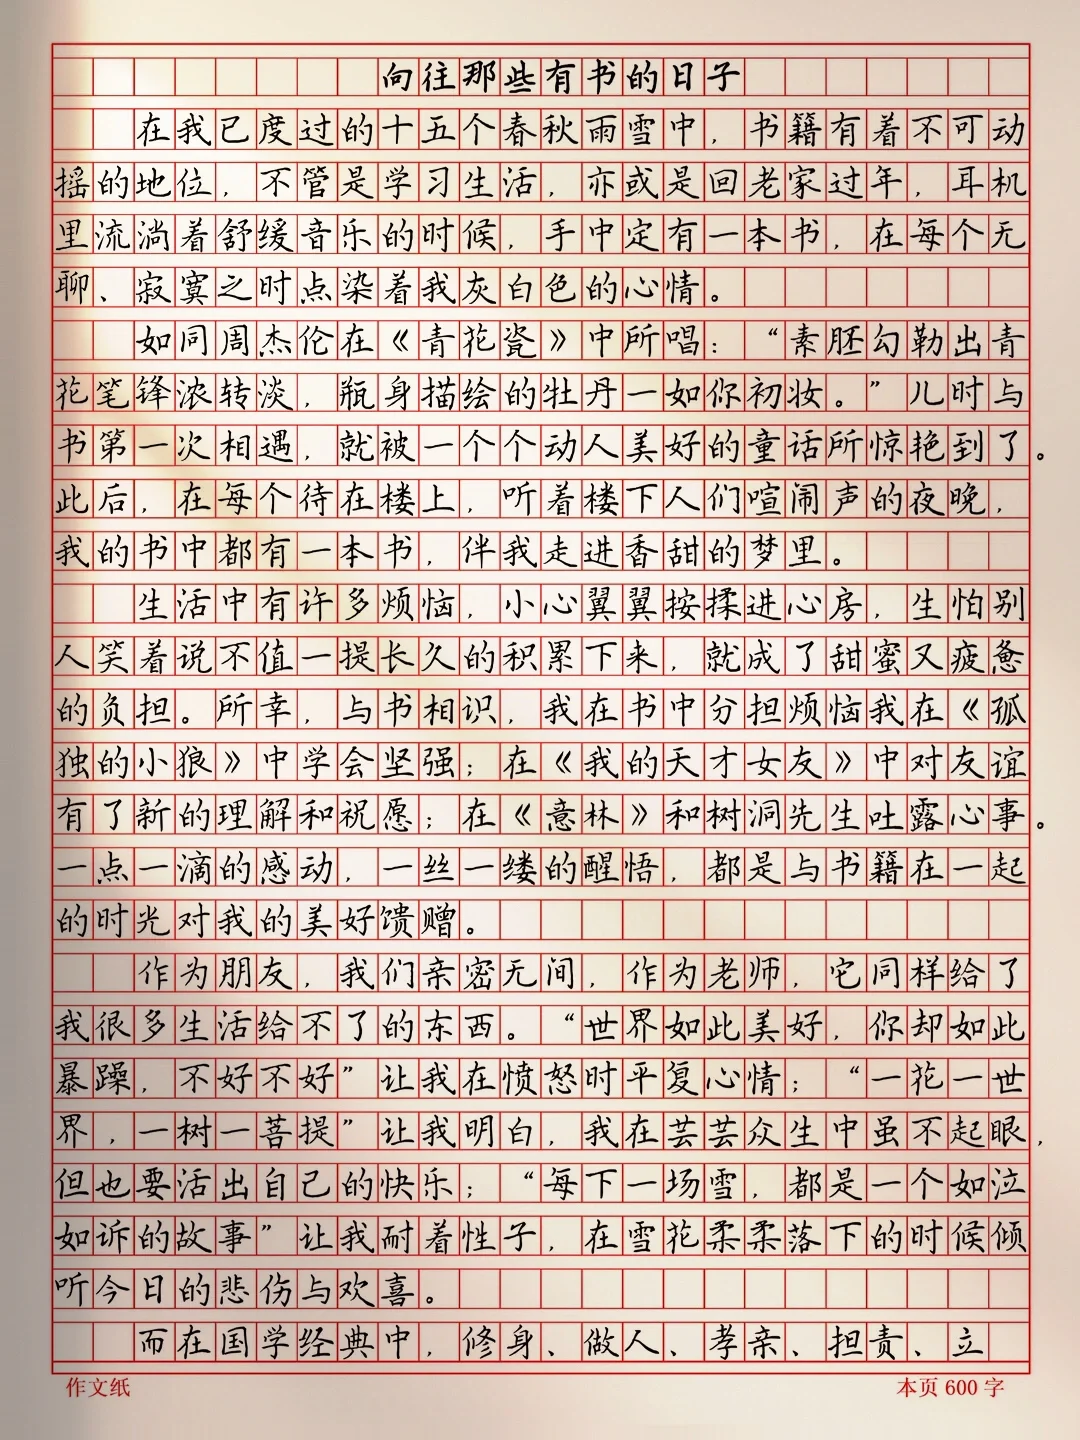 向往那些有书的日子
在我已度过的十五个春秋雨雪中，书籍有着不可动
摇的地位，不管是学习生活，亦或是回老家过年，耳机
里流淌着舒缓音乐的时候，手中定有一本书，在每个无
聊、寂寞之时点染着我灰白色的心情。
如同周杰伦在《青花瓷》中所唱：“素胚勾勒出青
花笔锋浓转淡，瓶身描绘的牡丹一如你初妆。”儿时与
书第一次相遇，就被一个个动人美好的童话所惊艳到了。
此后，在每个待在楼上，听着楼下人们喧闹声的夜晚，
我的书中都有一本书，伴我走进香甜的梦里。
生活中有许多烦恼，小心翼翼按揉进心房，生怕别
人笑着说不值一提长久的积累下来，就成了甜蜜又疲惫
的负担。所幸，与书相识，我在书中分担烦恼我在《孤
独的小狼》中学会坚强；在《我的天才女友》中对友谊
有了新的理解和祝愿；在《意林》和树洞先生吐露心事。
一点一滴的感动，一丝一缕的醒悟，都是与书籍在一起
的时光对我的美好馈赠。
作为朋友，我们亲密无间，作为老师，它同样给了
我很多生活给不了的东西。“世界如此美好，你却如此
暴躁，不好不好”让我在愤怒时平复心情；“一花一世
界，一树一菩提”让我明白，我在芸芸众生中虽不起眼，
但也要活出自己的快乐；“每下一场雪，都是一个如泣
如诉的故事”让我耐着性子，在雪花柔柔落下的时候倾
听今日的悲伤与欢喜。
而在国学经典中，修身、做人、孝亲、担责、立
作文纸
本页600字